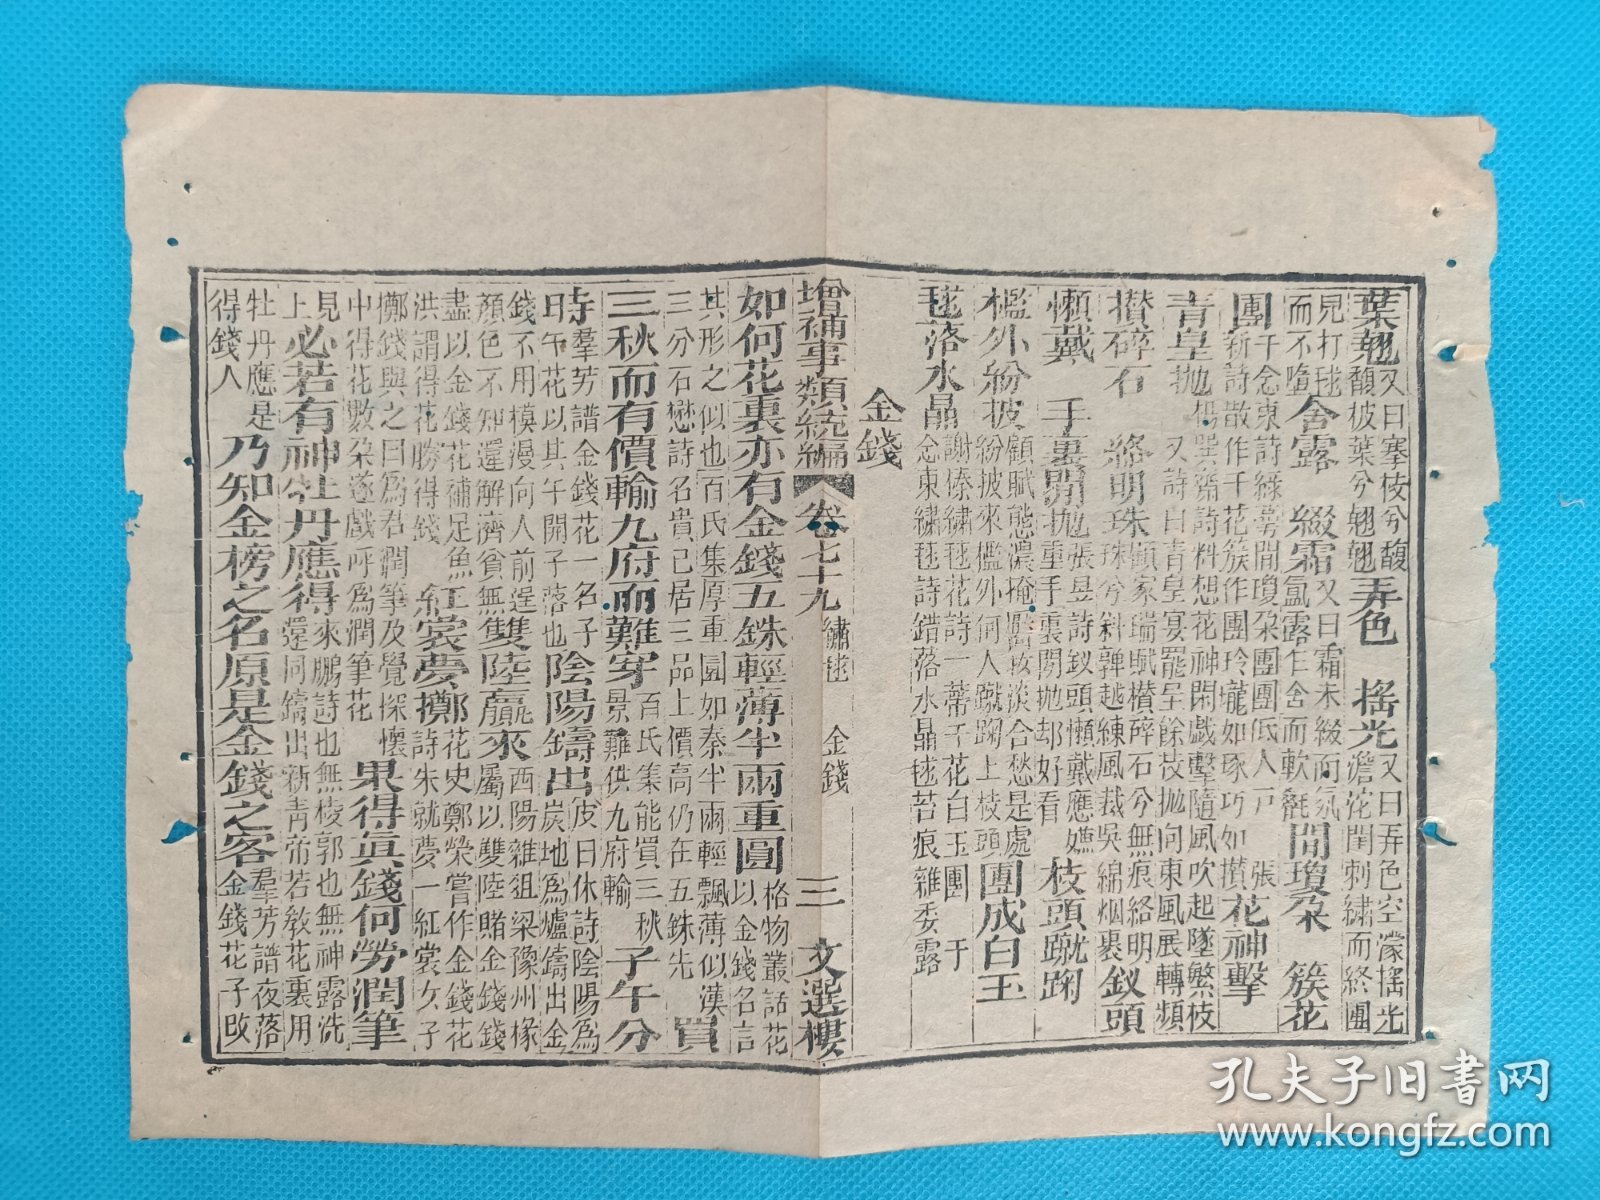 葉翹又曰搴枝兮馥馥披葉兮翹翹弄色 搖光又曰弄色空濛搖光澹沱閏刺繡而終團
見打毬而不喧含露 綴霜氳露乍含而軟毹又曰霜未綴而氛開瓊朶 簇花
團于念東詩綠蕚開瓊朶團團低人戸 張新詩散作千花簇作團玲瓏如琢巧如攢花神擊
青皇拋楊巽齋詩料想花神閑戱擊隨風吹起墜繁枝 又詩白青皇宴罷呈餘技拋向東風展轉頻
攅碎石 絡明珠顧家瑞賦攅碎石兮無痕絡明珠兮斜嚲越練風裁吳綿烟裹釵頭
懶戴 手裏閒拋張昱詩釵頭懶戴應嫌重手裏閒拋却好看 枝頭蹴踘
檻外紛披顧賦態濃掩凝淡合愁是處紛披來檻外何人蹴踘上枝頭團成白玉
謝傣繡毬花詩一蔕千花白玉團 于
毬落水晶念東繡毬詩錯落水晶毬苔痕雜委露
金錢
增補事類統編 卷七十九 繡毬 金錢 三 文選樓
如何花裏亦有金錢五銖輕薄半兩重圓格物叢話花以金錢名言
其形之似也百氏集厚重圓如秦半兩輕飄薄似漢三分石懋詩名貴已居三品上價高仍在五銖先 買
三秋而有價輸九府而難穿百氏集能買三秋景難供九府輸 子午分
時羣芳譜金錢花一名子午花以其午開子落也陰陽鑄出皮日休詩陰陽爲炭地爲爐鑄出金
錢不用模漫向人前逞顏色不知還解濟貧無雙陸贏來西陽雜俎梁豫州椽屬以雙陸賭金錢錢
盡以金錢花補足魚洪謂得花勝得錢 紅裳夢擲花史鄭榮嘗作金錢花詩未就夢一紅裳女子
擲錢與之曰爲君潤筆及覺探懷中得花數朶遂戲呼爲潤筆花 果得眞錢何勞潤筆
見上必若有神牡丹應得來鵬詩也無棱郭也無神露洗還同鑄出新靑帝若敎花裏用
牡丹應是得錢人 乃知金榜之名原是金錢之客羣芳譜夜落金錢花子攺
孔夫子旧書网
www.kongfz.com